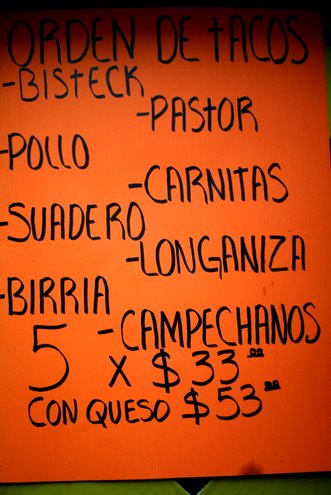 ORDEN DE TACOS
-BISTECK
-PASTOR
-POLLO
-CARNITAS
-SUADERO
-LONGANIZA
-BIRRIA
-CAMPECHANOS
5 x $33.00
CON QUESO $53.00